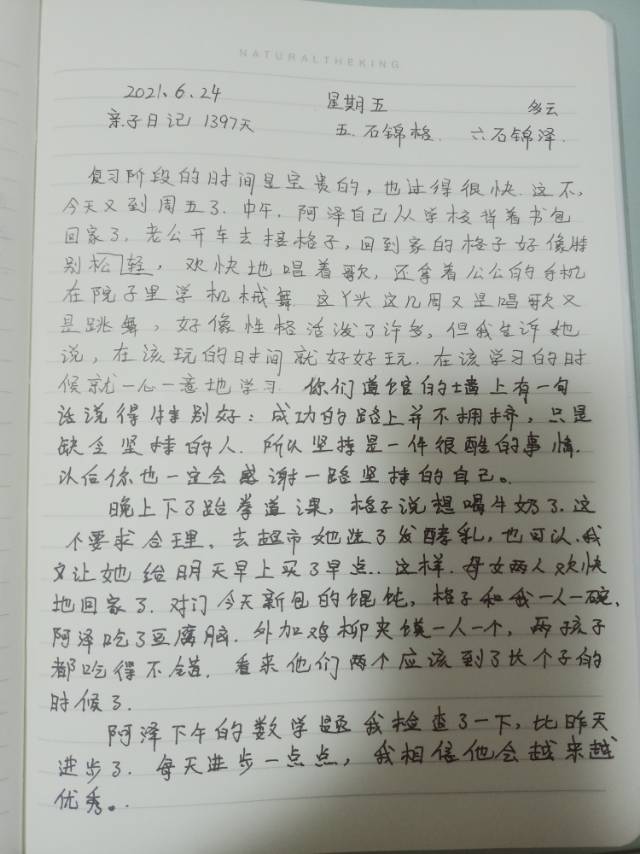 NATURALTHEKING
2021.6.24 星期五 多云
亲子日记 1397天 五.石锦格. 六石锦泽.
复习阶段的时间是宝贵的,也过得很快.这不,
今天又到周五了.中午,阿泽自己从学校背着书包
回家了.老公开车去接格子,回到家的格子好像特
别松轻,欢快地唱着歌,还拿着公公的手机
在院子里学机械舞.这丫兴这几周又是唱歌又
是跳舞,好像性格活泼了许多,但我告诉她
说,在该玩的时间就好好玩.在该学习的时
候就一心一意地学习.你们道馆的墙上有一句
话说得特别好:成功的路上并不拥挤,只是
缺全坚持的人.所以坚持是一件很酷的事情.
以后你也一定会感谢一路坚持的自己。
晚上下了跆拳道课,格子说想喝牛奶了.这
个要求合理,去超市她选了发酵乳,也可以.我
又让她给明天早上买了早点.这样.母女两人欢快
地回家了.对门今天新包的馄饨,格子和我一人一碗.
阿泽吃了豆腐脑.外加鸡柳夹馍一人一个,两孩子
都吃得不错.看来他们两个应该到了长个子的
时候了.
阿泽下午的数学题我检查了一下,比昨天
进步了.每天进步一点点,我相信他会越来越
优秀。.